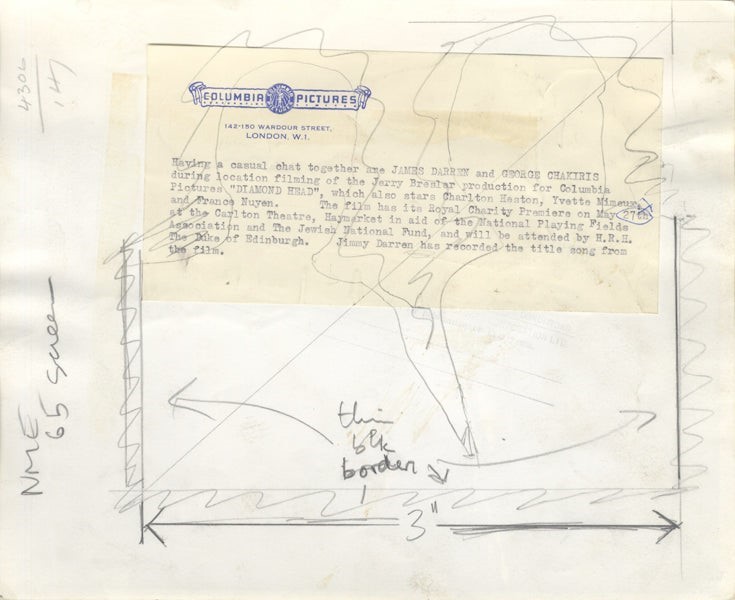 4306
147
COLUMBIA PICTURES
142-150 WARDOUR STREET,
LONDON, W.I.
Having a casual chat together are JAMES DARREN and GEORGE CHAKIRIS
during location filming of the Jerry Bresler production for Columbia
Pictures "DIAMOND HEAD", which also stars Charlton Heston, Yvette Mimeux
and France Nuyen. The film has its Royal Charity Premiere on May 27th
at the Carlton Theatre, Haymarket in aid of the National Playing Fields
Association and The Jewish National Fund, and will be attended by H.R.H.
The Duke of Edinburgh. Jimmy Darren has recorded the title song from
the film.
NME
65 Screen
thin
blk
border
3"